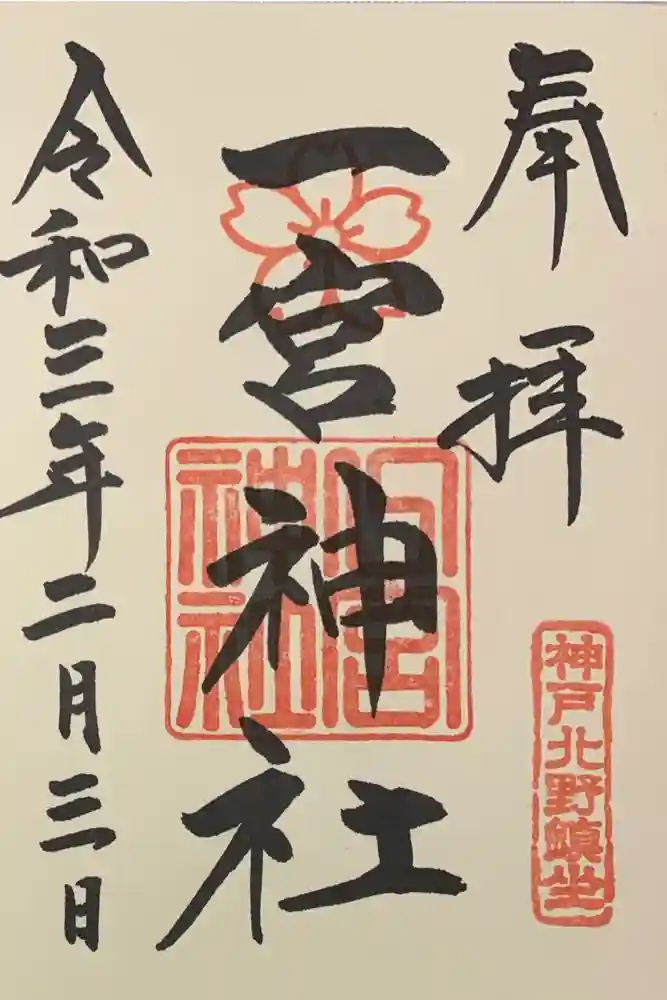 奉拝
神戸北野鎮坐
一宮神社
一宮神社
令和三年二月三日